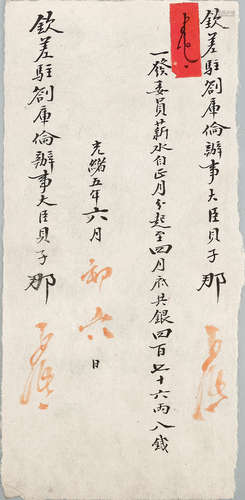 欽差駐劄庫倫辦事大臣貝子那
一發委員薪水自正月分起至四月底共銀四百七十六兩八錢
光緒五年六月初六日
欽差駐劄庫倫辦事大臣貝子那